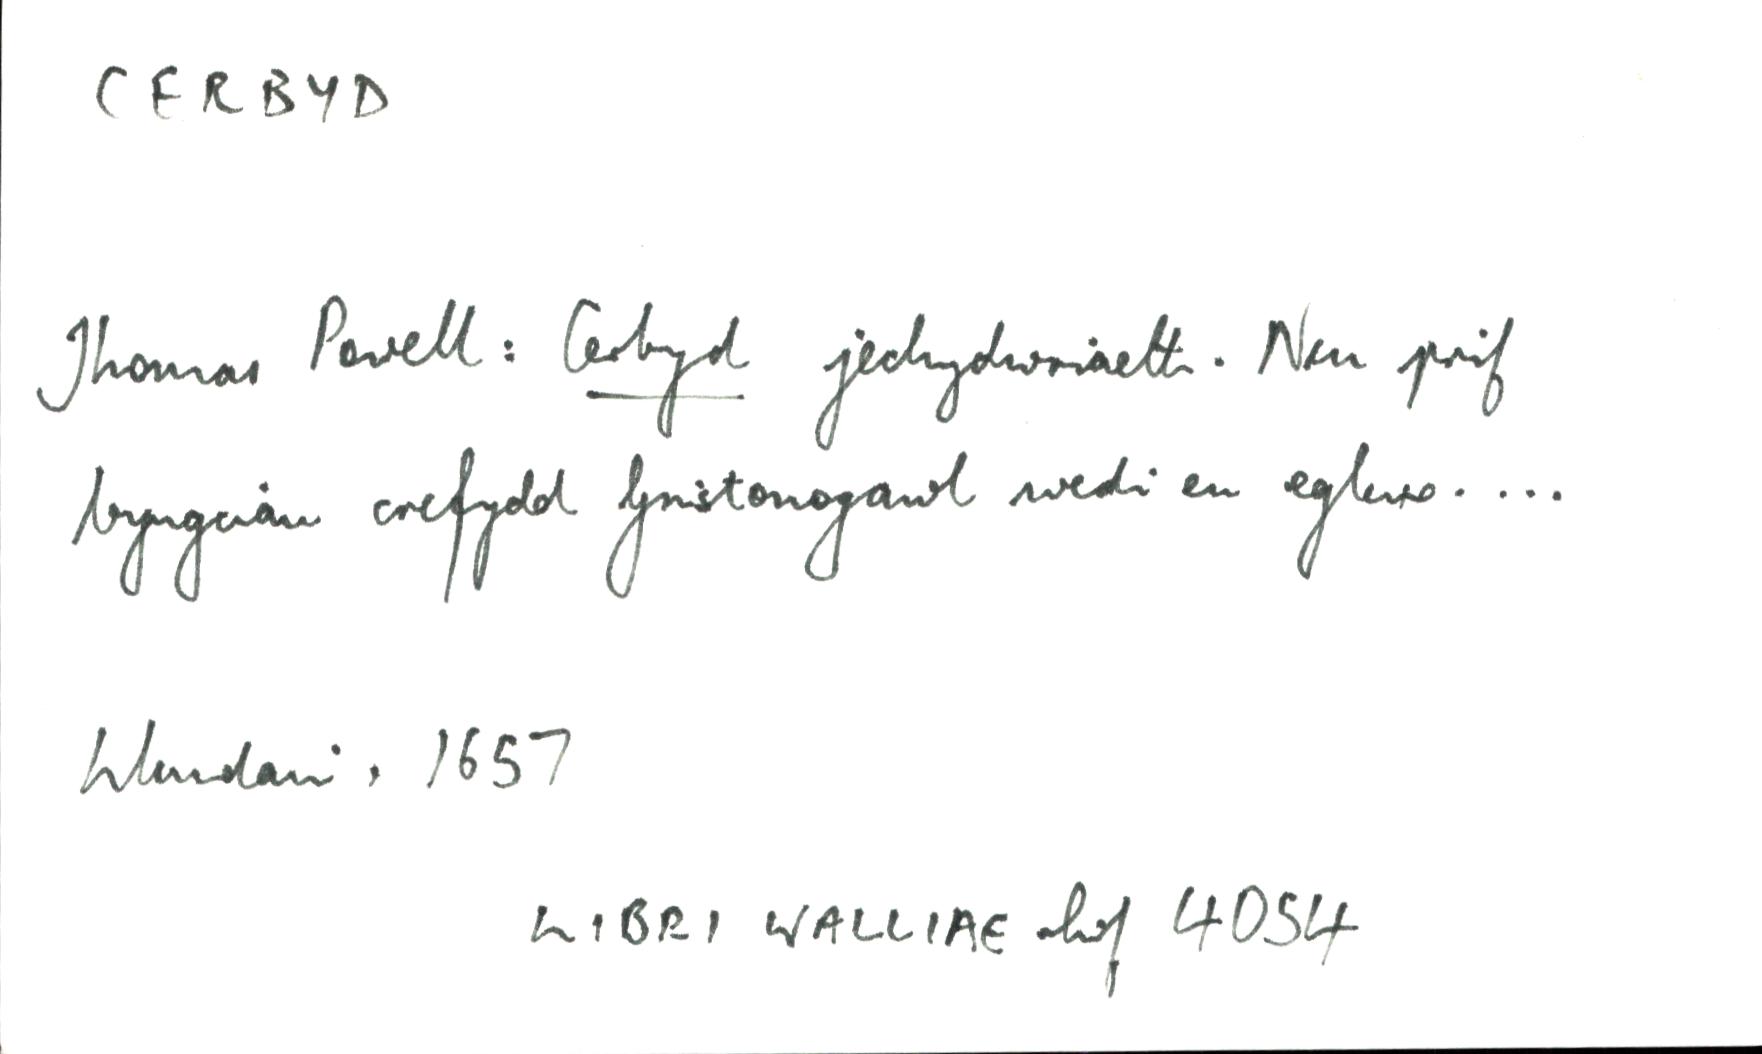 CERBYD
Thomas Powell: Cerbyd jechydwriaeth. Neu prif
byngciau crefydd Gristonogawl wedi eu egluro....
Llundain, 1657
LIBRI WALLIAE rhif 4054